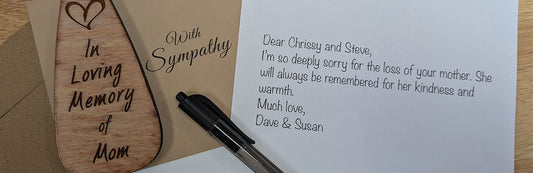 In
Loving
Memory
of
Mom
With
Sympathy
Dear Chrissy and Steve,
I'm so deeply sorry for the loss of your mother. She
will always be remembered for her kindness and
warmth.
Much love,
Dave & Susan